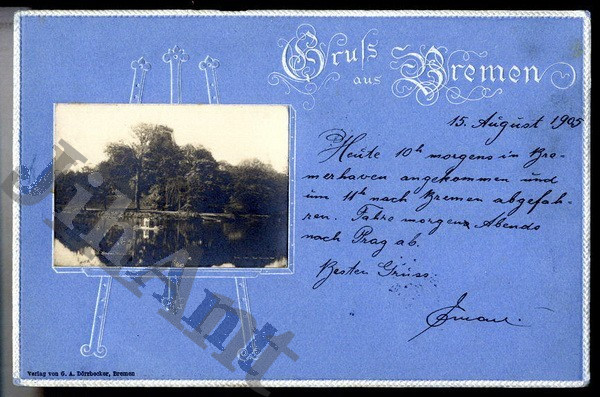 Gruß
aus Bremen
15. August 1905
Heute 10h morgens in Bre-
merhaven angekommen und
um 11h nach Bremen abgefah-
ren. Fahre morgen Abends
nach Prag ab.
Besten Gruss
Verlag von G. A. Dörrbecker, Bremen
JihAnt